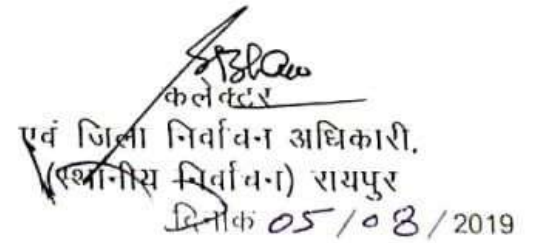 कलेक्टर
एवं जिला निर्वाचन अधिकारी,
(स्थानीय निर्वाचन) रायपुर
दिनांक 05/08/2019